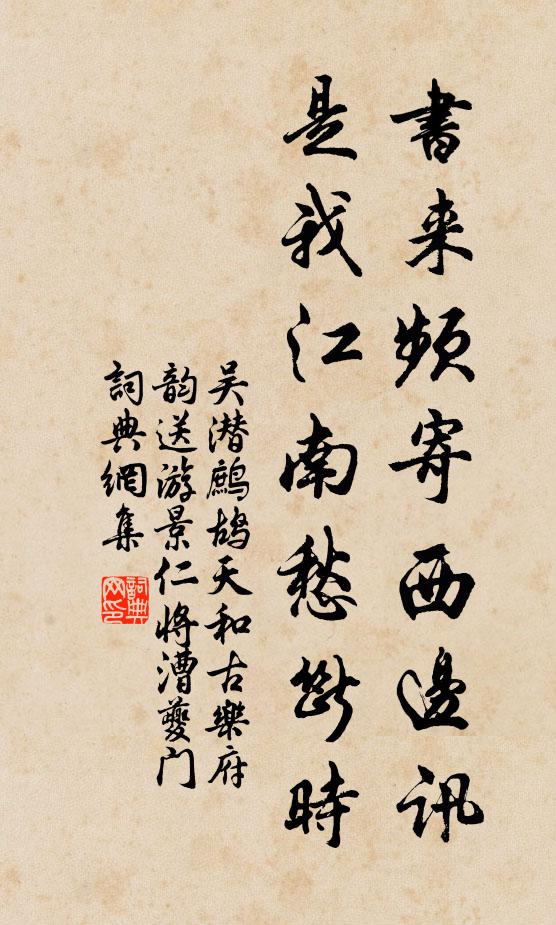 書来頻寄西邊訊
是我江南愁斷時
吴潜鷓鴣天和古樂府
韵送游景仁将漕夔门
詞典網集
詞典網印